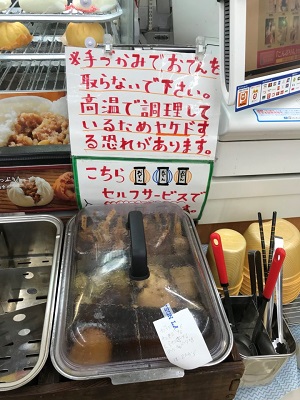 ※手づかみでおでんを
取らないで下さい。
高温で調理して
いるためヤケドす
る恐れがあります。
こちら
セルフサービスで